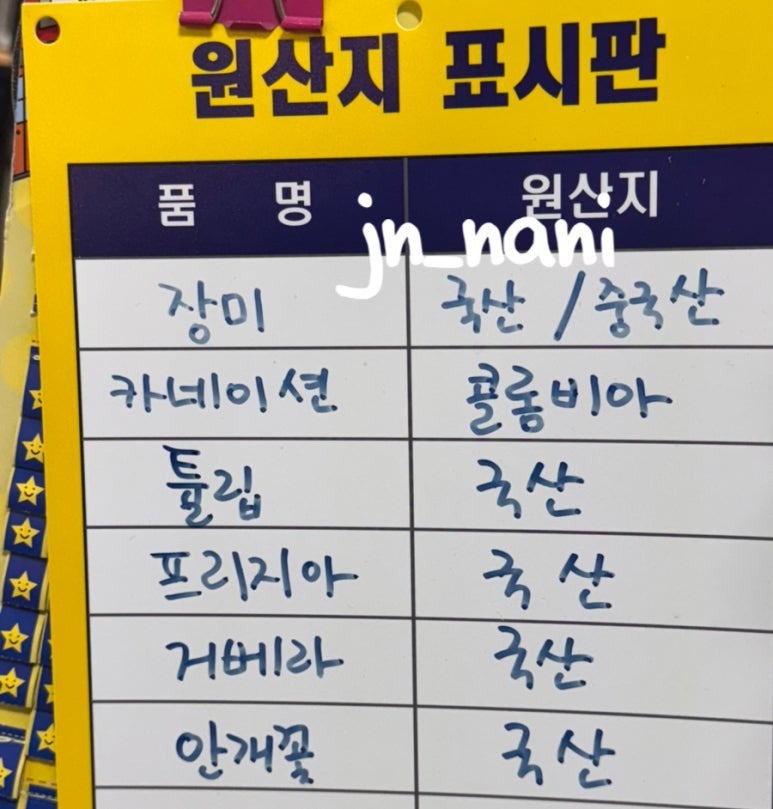 원산지 표시판
품 명 원산지
jn_nani
장미 국산 / 중국산
카네이션 콜롬비아
튤립 국산
프리지아 국산
거베라 국산
안개꽃 국산